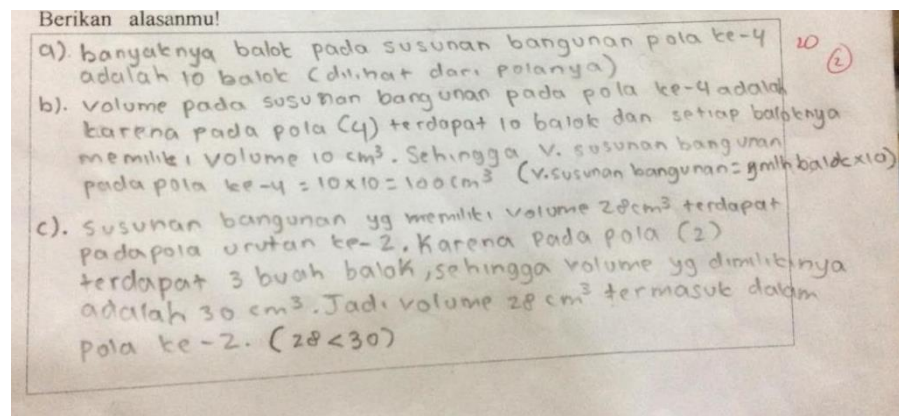 Berikan alasanmu!
a). banyaknya balok pada susunan bangunan pola ke-4 20
adalah 10 balok (dilihat dari polanya) 2
b). Volume pada susunan bangunan pada pola ke-4 adalah
karena pada pola (4) terdapat 10 balok dan setiap baloknya
memiliki volume 10 cm³. Sehingga V. susunan bangunan
pada pola ke-4 = 10x10 = 100 cm³ (V. susunan bangunan = jmlh balok x10)
c). Susunan bangunan yg memiliki volume 28 cm³ terdapat
pada pola urutan ke-2. Karena pada pola (2)
terdapat 3 buah balok, sehingga volume yg dimilikinya
adalah 30 cm³. Jadi volume 28 cm³ termasuk dalam
pola ke-2. (28<30)